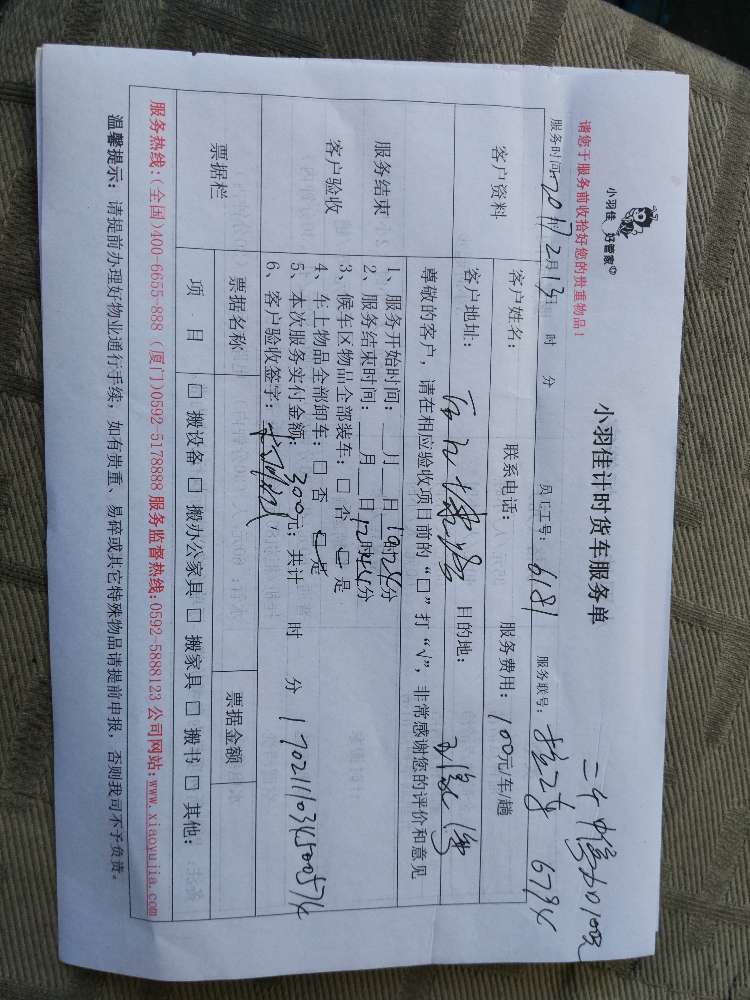 小羽佳 好管家
小羽佳计时货车服务单
请您于服务前收拾好您的贵重物品!
服务时间 2017 2月 13日 时 分 员工工号: 6181 服务联号: 6794
客户资料
客户姓名: 联系电话: 服务费用: 100元/车/趟
客户地址: 目的地:
尊敬的客户,请在相应验收项目前的“口”打“√”,非常感谢您的评价和意见
服务结束
客户验收
1、服务开始时间: 月 日 10时24分
2、服务结束时间: 月 日 12时44分
3、候车区物品全部装车:□ 否 □ 是
4、车上物品全部卸车:□ 否 □ 是
5、本次服务实付金额: 300元; 共计 时 分 17021110345005714
6、客户验收签字:
票据栏
票据名称 票据金额
项 目 □ 搬设备 □ 搬办公家具 □ 搬家具 □ 搬书 □ 其他:
服务热线:(全国)400-6655-888 (厦门)0592-5178888 服务监督热线:0592-5888123 公司网站:www.xiaoyujia.com
温馨提示: 请提前办理好物业通行手续,如有贵重、易碎或其它特殊物品请提前申报,否则我司不予负责。